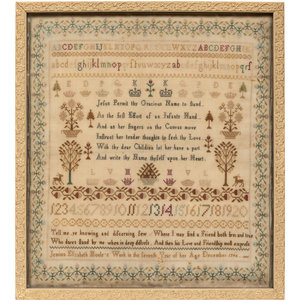 ABCDEFGHIJKLMNOPQRSTUVWXYZABCDEFGH
abcdefghijklmnopqrstuvwxyzabcdefghijklmnopqrf
Jesus Permit thy Gracious Name to stand
As the first Effort of an Infants Hand
And as her fingers on the Canvas move
Indirect her tender thoughts to seek thy Love
With thy dear Children let her have a part
And write thy Name thyself upon her Heart
1234567891011121314151617181920
Tell me ye knowing and discerning few Where I may find a Friend both firm and true
Who dares stand by me when in deep distress And then his Love and Friendship most express
Elizabeth Work in the Seventh Year of her Age December